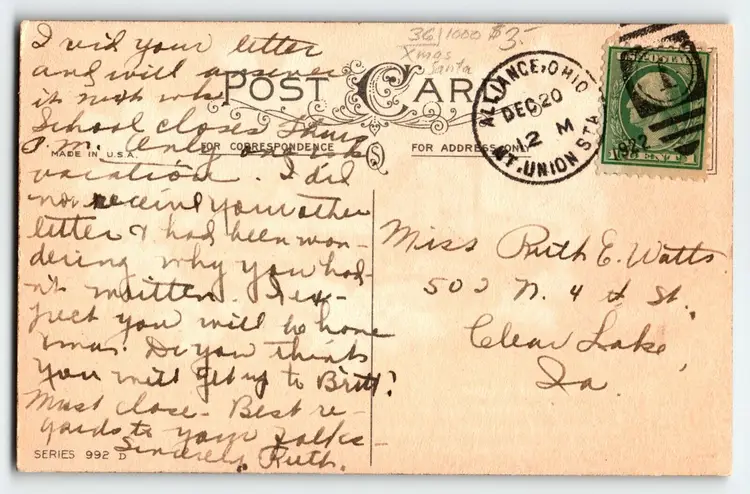 36/1000 $3-
Xmas
Santa
POST CARD
MADE IN U.S.A.
FOR CORRESPONDENCE
FOR ADDRESS ONLY
ALLIANCE, OHIO
DEC 20
12 M
MT. UNION STA.
1922
1 CENT 1
I recd your letter
and will answer
it next wk.
School closes Thurs
P.M. Only one wk
vacation. I did
not receive your other
letter & had been won-
dering why you had-
n't written. I ex-
pect you will be home
xmas. Do you think
you will get up to Britt?
Must close. Best re-
gards to your folks-
Sincerely, Ruth.
Miss Ruth E. Watts
502 N. 4th St.,
Clear Lake,
Ia.
SERIES 992 D